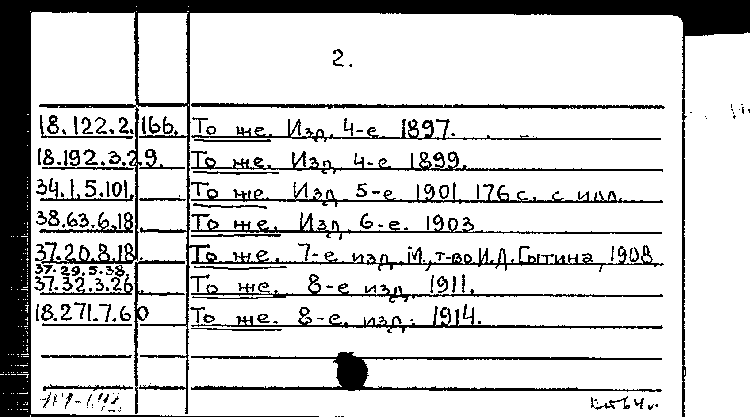 2.
18.122.2.166. То же. Изд. 4-е 1897.
18.192.3.29. То же. Изд. 4-е 1899.
34.1.5.101. То же. Изд 5-е 1901. 176 с. с илл.
38.63.6.18. То же. Изд. 6-е. 1903
37.20.8.18. То же. 7-е изд. М., т-во И.Д. Сытина, 1908.
37.29.5.38.
37.32.3.26. То же. 8-е изд. 1911.
18.271.7.60 То же. 8-е. изд. 1914.